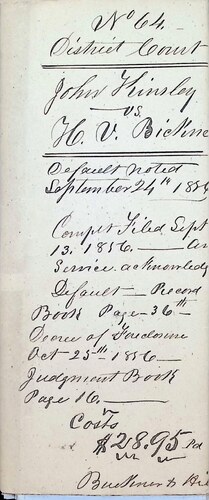 No 64
District Court
John Kinsley
vs.
H. V. Bickne
Default noted
September 24th 1856
Compt Filed Sept
13. 1856 — an
Service acknowledg
Default — Record
Book Page 36th
Decree of Foreclosure
Oct 25th 1856 —
Judgment Book
Page 16.
Costs
$28.95 Pd
Buckner & Hil